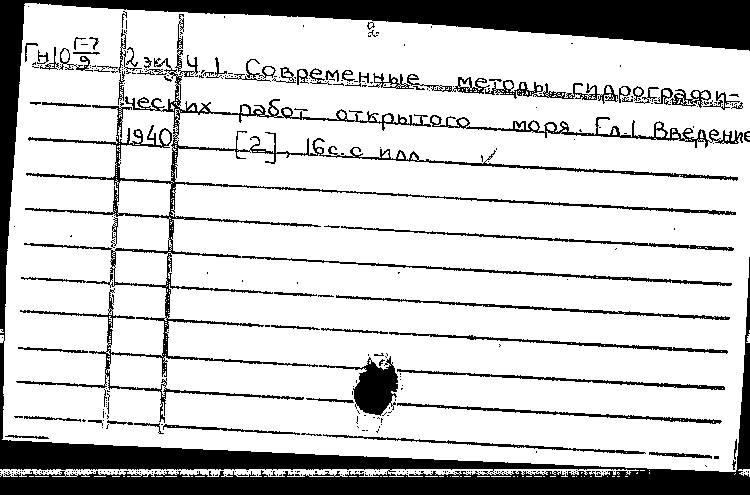 2
Гн10 Г-7/9 2 экз Ч 1. Современные методы гидрографи-
ческих работ открытого моря. Гл.1. Введение
1940 [2], 16с. с илл.